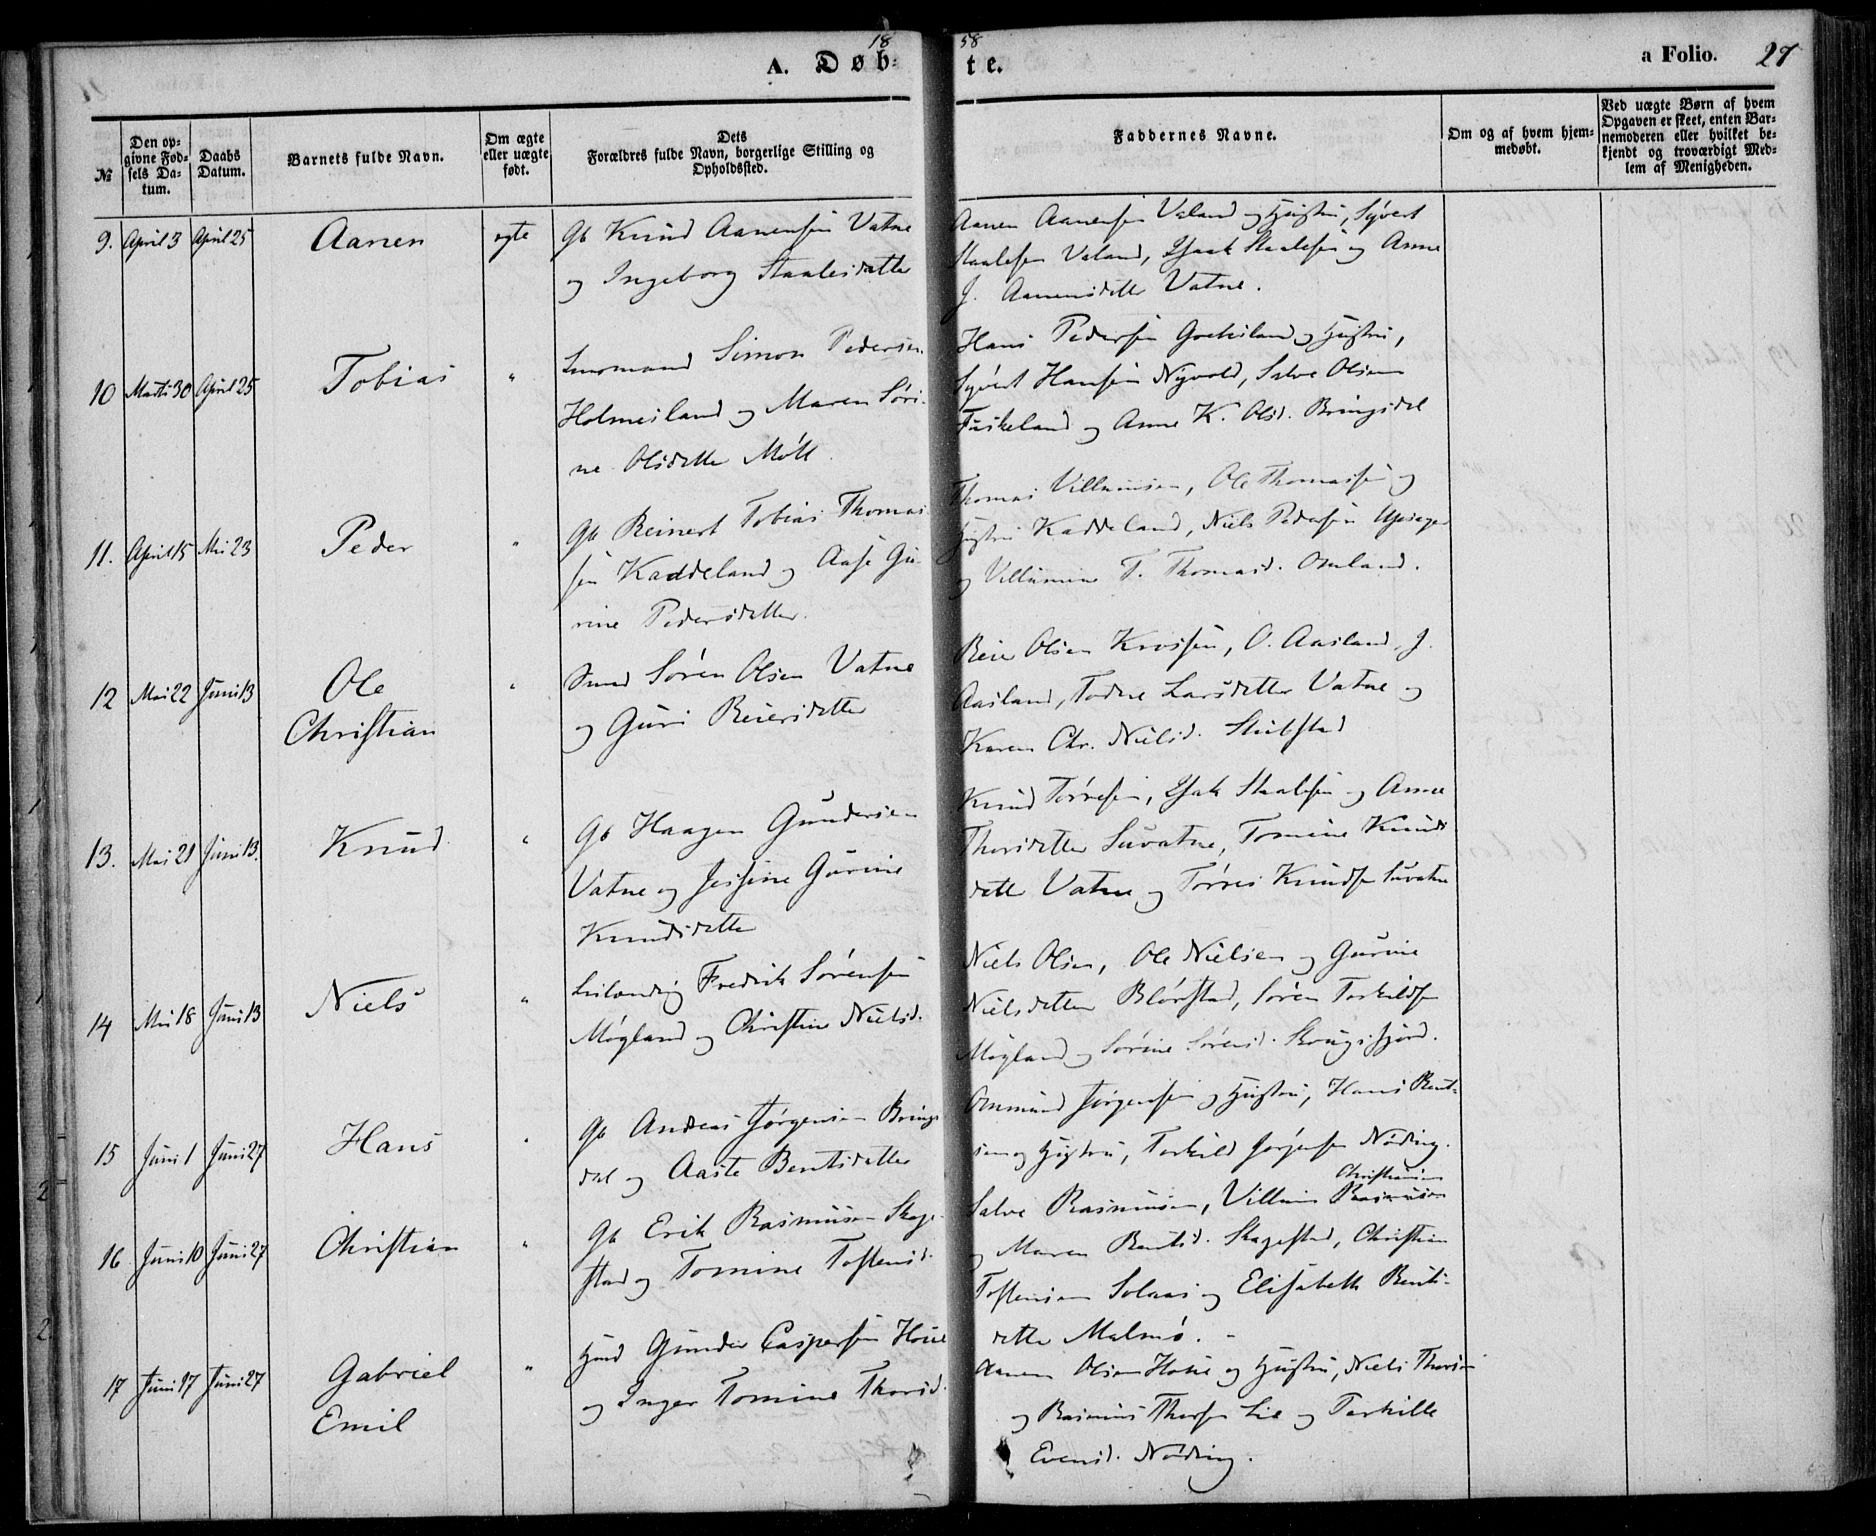 1858
A. Døb-te. a Folio. 27
№
Den opgivne Fødsels Datum.
Daabs Datum.
Barnets fulde Navn.
Om ægte eller uægte født.
Dets Forældres fulde Navn, borgerlige Stilling og Opholdssted.
Faddernes Navne.
Om og af hvem hjemmedøbt.
Ved uægte Børn af hvem Opgaven er skeet, enten Barnemoderen eller hvilket bekjendt og troværdigt Medlem af Menigheden.
9. April 3 April 25 Aanen egte Gb Knud Aanensen Vatne
og Ingeborg Staalesdatter
Aanen Aanensen Valand og Hustru, Syvert
Staalesen Valand, Isaak Staalesen og Anne
J. Aanensdatter Vatne.
10 Marts 30 April 25 Tobias " Simon Pedersen
Holmesland og Maren Søri-
ne Olsdatter Møll
Hans Pedersen Greibsland og Hustru,
Syvert Hansen Nyvold, Salve Olsen
Fuskeland og Anne K. Olsd. Bringsdal
11. April 15 Mai 23 Peder " Gb Reinert Tobias Thomas-
sen Kaddeland og Aase Gu-
rine Pedersdatter.
Thomas Villumsen, Ole Thomassen og
Hustru Kaddeland, Niels Pedersen
og Villumine T. Thomasd. Omland.
12 Mai 22 Juni 13 Ole
Christian " Søren Olsen Vatne
og Guri Reiersdatter
Reier Olsen Krossen, O. Aasland, J.
Aasland, Todne Larsdatter Vatne og
Karen Chr. Nielsd. Stubstad
13. Mai 21 Juni 13. Knud " Gb Haagen Gundersen
Vatne og Jessine Gurine
Knudsdatter
Knud Tørresen, Isak Staalesen og Anne
Thorsdatter Suvatne, Tomine Knuds-
datter Vatne og Tørres Knudsen Suvatne
14 Mai 18 Juni 13 Niels " Leilænding Fredrik Sørensen
Møgland og Christine Nielsd.
Niels Olsen, Ole Nielsen og Gurine
Nielsdatter Blørstad, Søren Torkildsen
Møgland og Sørine Sørensd. Skougsfjord.
15 Juni 1 Juni 27 Hans " Gb Andreas Jørgensen Brings-
dal og Aaste Bentsdatter
Ommund Jørgensen og Hustru, Hans Bent-
sen og Hustru, Torkild Jørgensen Nøding.
16 Juni 10 Juni 27 Christian " Gb Erik Rasmusen Skage-
stad og Tomine Toftensd.
Christiansen
Salve Rasmusen, Villum Rasmusen
og Maren Bentsd. Skagestad, Christian
Toftensen Solaas og Elisabeth Bents-
datter Malmø. -
17 Juni 17 Juni 27 Gabriel
Emil " Hmd Gunder Caspersen Houe
og Inger Tomine Thorsd.
Aanen Olsen Houe og Hustru, Niels Thorsen
og Rasmus Thorsen Lie og Torkille
Evensd. Nøding.